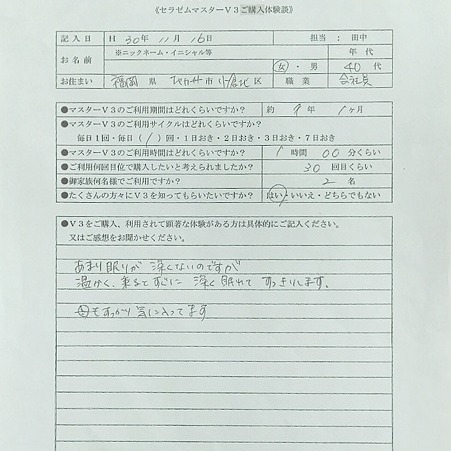 《セラゼムマスターV3ご購入体験談》
記入日 H 30年 11月 16日 担当：田中
お名前 ※ニックネーム・イニシャル等 年代
女・男 40代
お住まい 福岡 県 北九州市小倉北区 職業 会社員
●マスターV3のご利用期間はどれくらいですか？ 約 年 1ヶ月
●マスターV3のご利用サイクルはどれくらいですか？
毎日1回・毎日(1)回・1日おき・2日おき・3日おき・7日おき
●マスターV3のご利用時間はどれくらいですか？ 1時間 00分くらい
●ご利用何回目位で購入したいと考えられましたか？ 30回目くらい
●御家族何名様でご利用ですか？ 2名
●たくさんの方々にV3を知ってもらいたいですか？ はい・いいえ・どちらでもない
●V3をご購入、利用されて顕著な体験がある方は具体的にご記入ください。
又はご感想をお聞かせください。
あまり眠りが深くないのですが
温かく、乗るとすぐに深く眠れてすっきりします。
母もすっかり気に入ってます